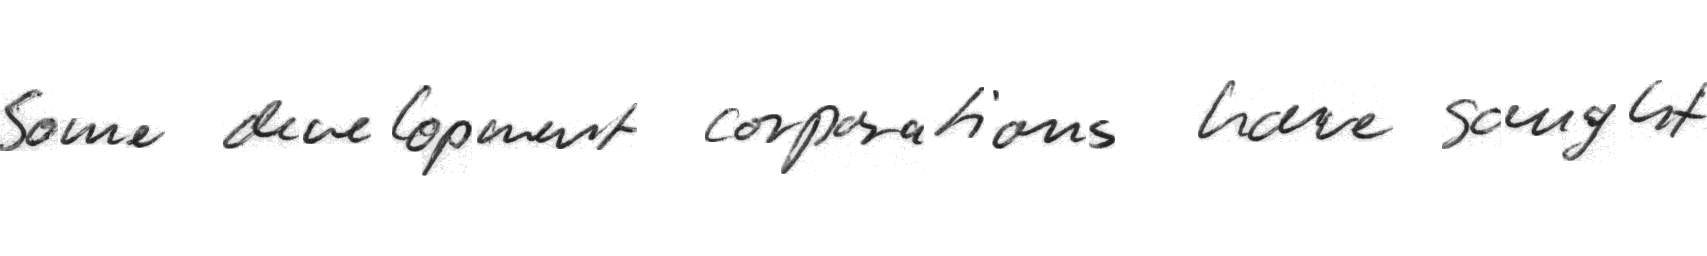 Some development corporations have sought